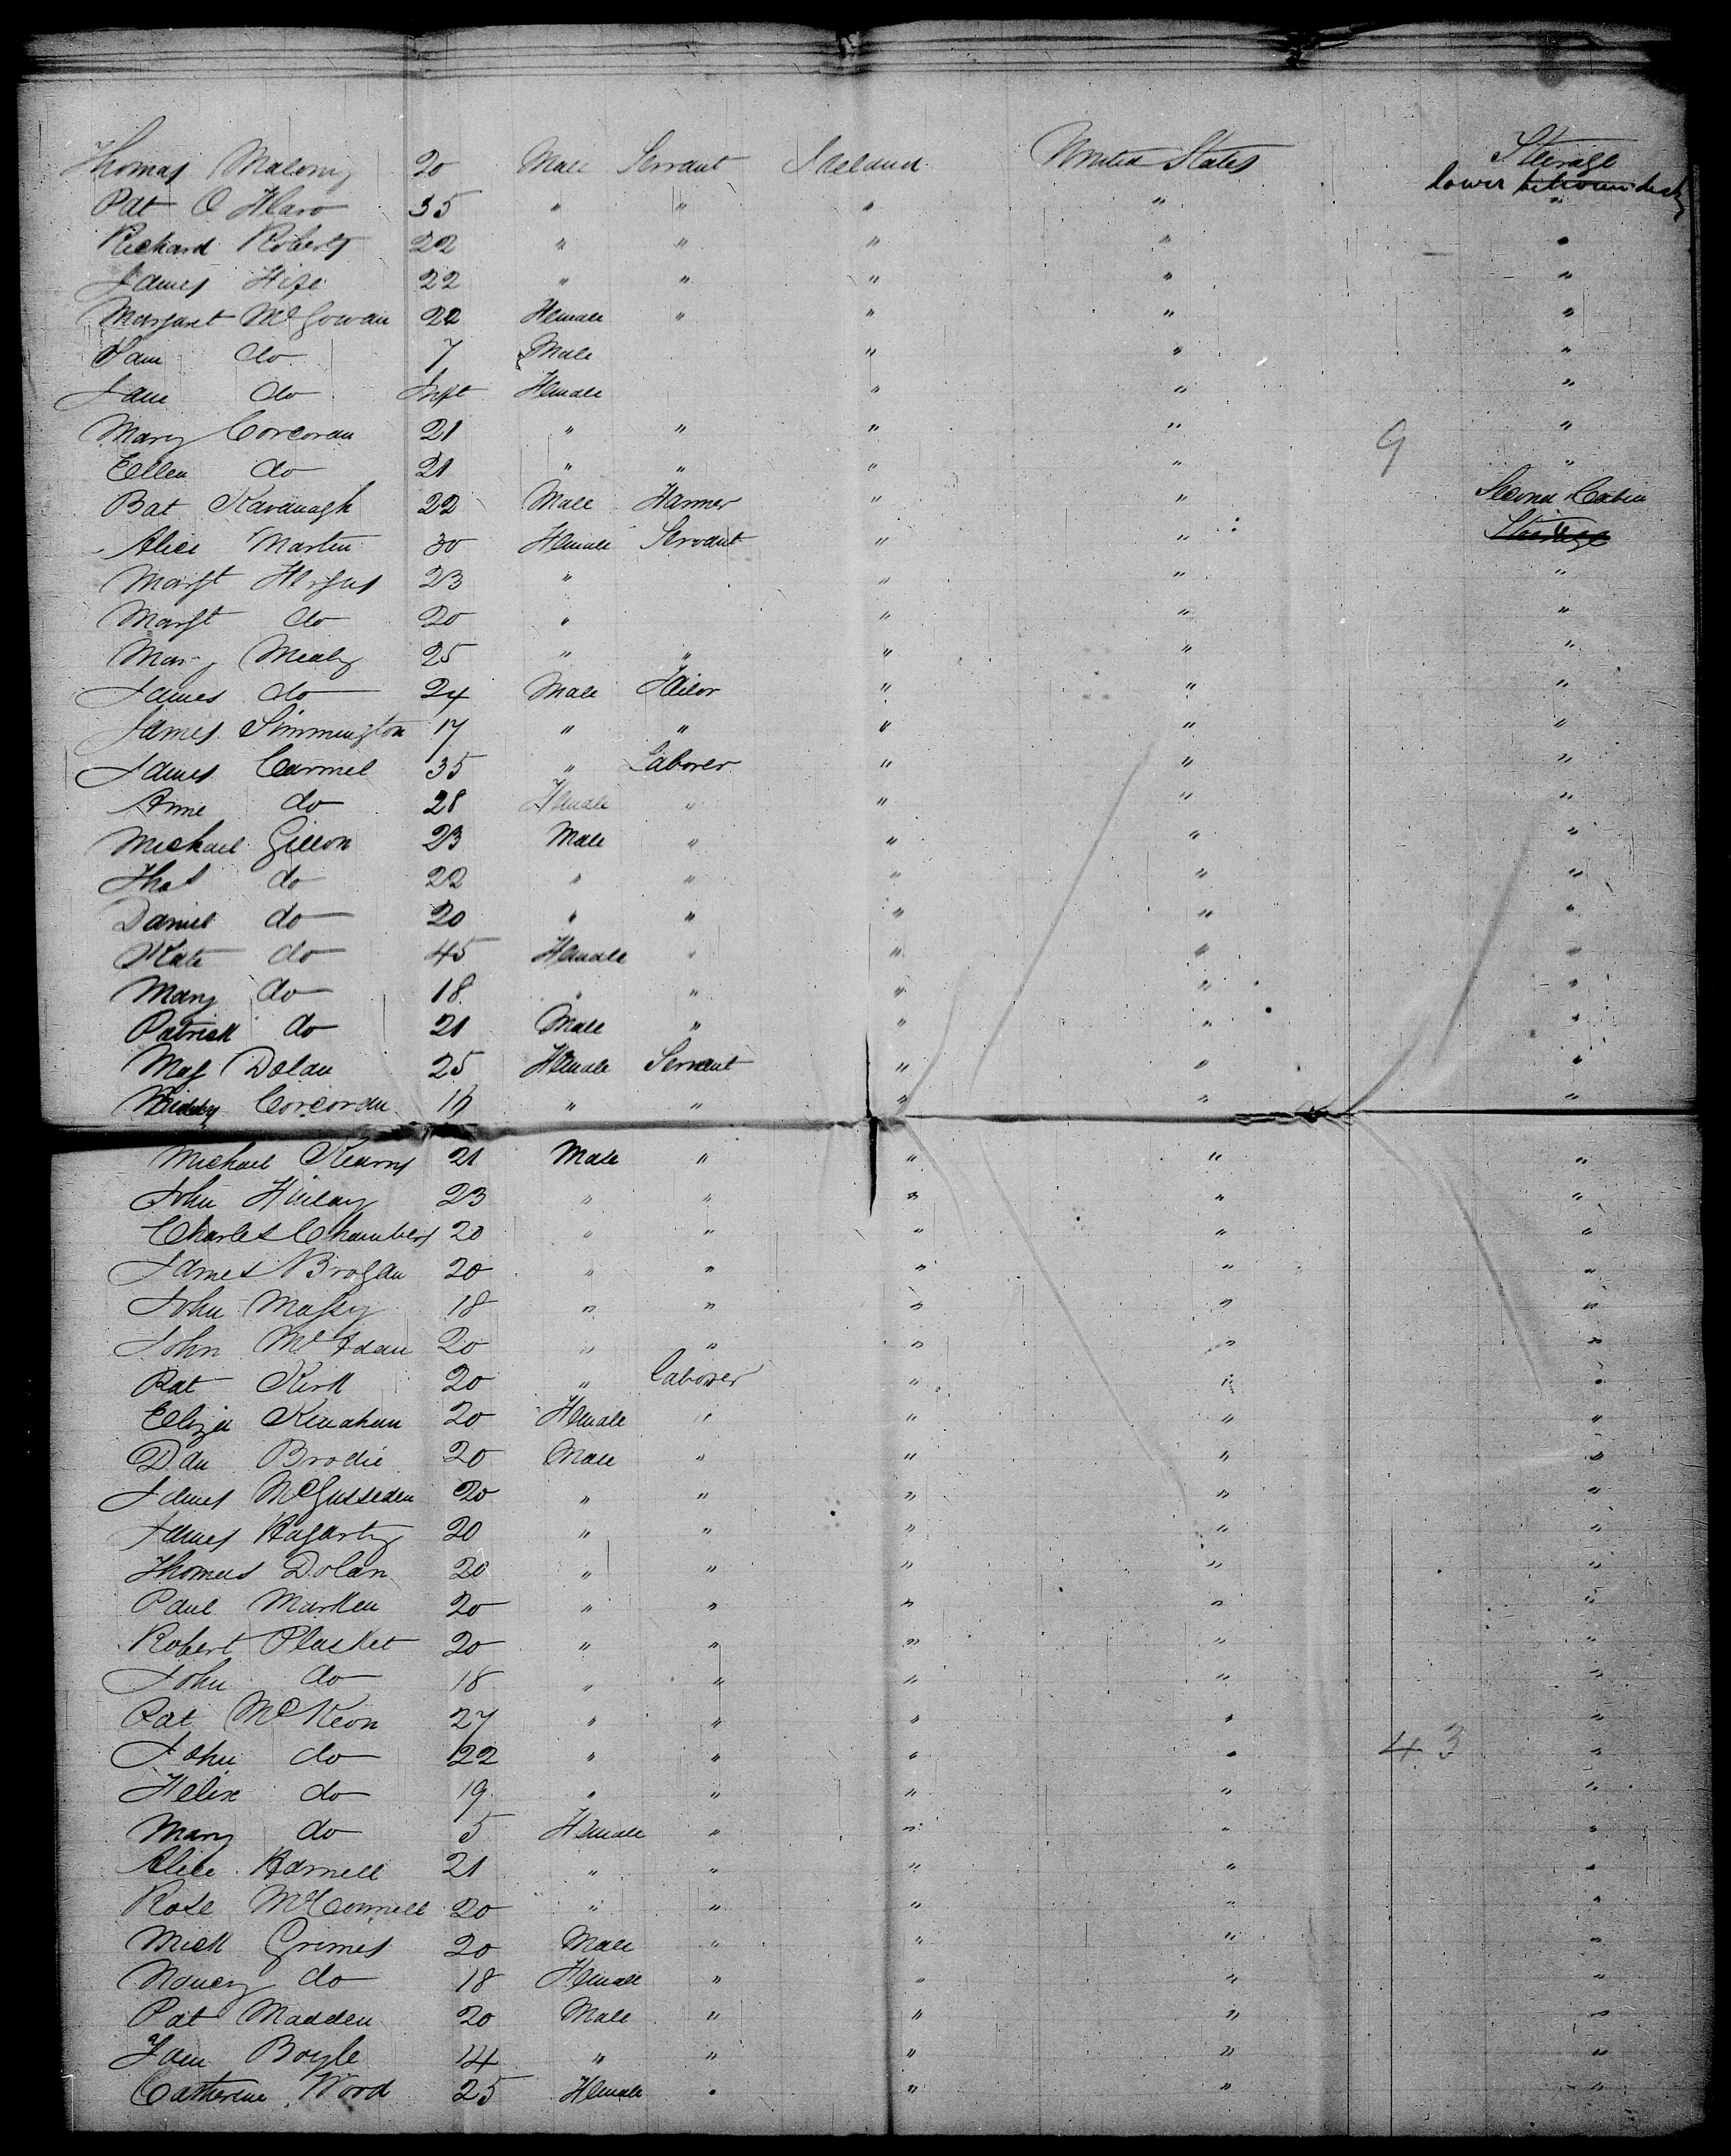 Thomas Malony 20 Male Servant Ireland United States Steerage
lower between decks
Pat O Haro 35 " " " " "
Richard Roberts 22 " " " " "
James Fife 22 " " " " "
Margaret McGowan 22 Female " " " "
Sam do 7 Male " " "
Jane do Inft Female " " "
Mary Corcoran 21 " " " " "
Ellen do 21 " " " " 9 "
Bat Kavanagh 22 Male Farmer " " Second Cabin
Alice Martin 30 Female Servant " " Steerage
Margt Fergus 23 " " " "
Margt do 20 " " " "
Mary Mealy 25 " " " " "
James do 24 Male Tailor " " "
James Simmington 17 " " " " "
James Carmel 35 " Laborer " " "
Anne do 28 Female " " " "
Michael Gillon 23 Male " " " "
Thos do 22 " " " " "
Daniel do 20 " " " " "
Kate do 45 Female " " " "
Mary do 18 " " " " "
Patrick do 21 Male " " " "
May Dolan 25 Female Servant " " "
Corcoran " " " " "
Michael Kearns 21 Male " " " "
John Finlay 23 " " " " "
Charles Chambers 20 " " " " "
James Brogan 20 " " " " "
John Massy 18 " " " " "
John McAdam 20 " " " " "
Pat Kirk 20 " Laborer " " "
Eliza Kinahan 20 Female " " " "
Dan Brodie 20 Male " " " "
James 20 " " " " "
James Hagarty 20 " " " " "
Thomas Dolan 20 " " " " "
Paul Marken 20 " " " " "
Robert Plasket 20 " " " " "
John do 18 " " " " "
Pat McKeon 27 " " " " "
John do 22 " " " " 43 "
Felix do 19 " " " " "
Mary do 5 Female " " " "
Alice Harnell 21 " " " " "
Rose McConnell 20 " " " " "
Mick Grimes 20 Male " " " "
Nancy do 18 Female " " " "
Pat Madden 20 Male " " " "
Boyle 14 " " " " "
Catherine Wood 25 Female " " " "